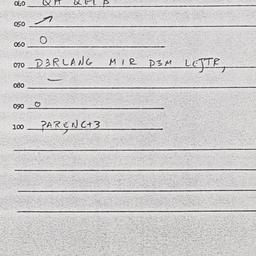 060
050
060 O
070 D3RLANG MIR D3M LCJTR,
080
090 O
100 PARENC+3